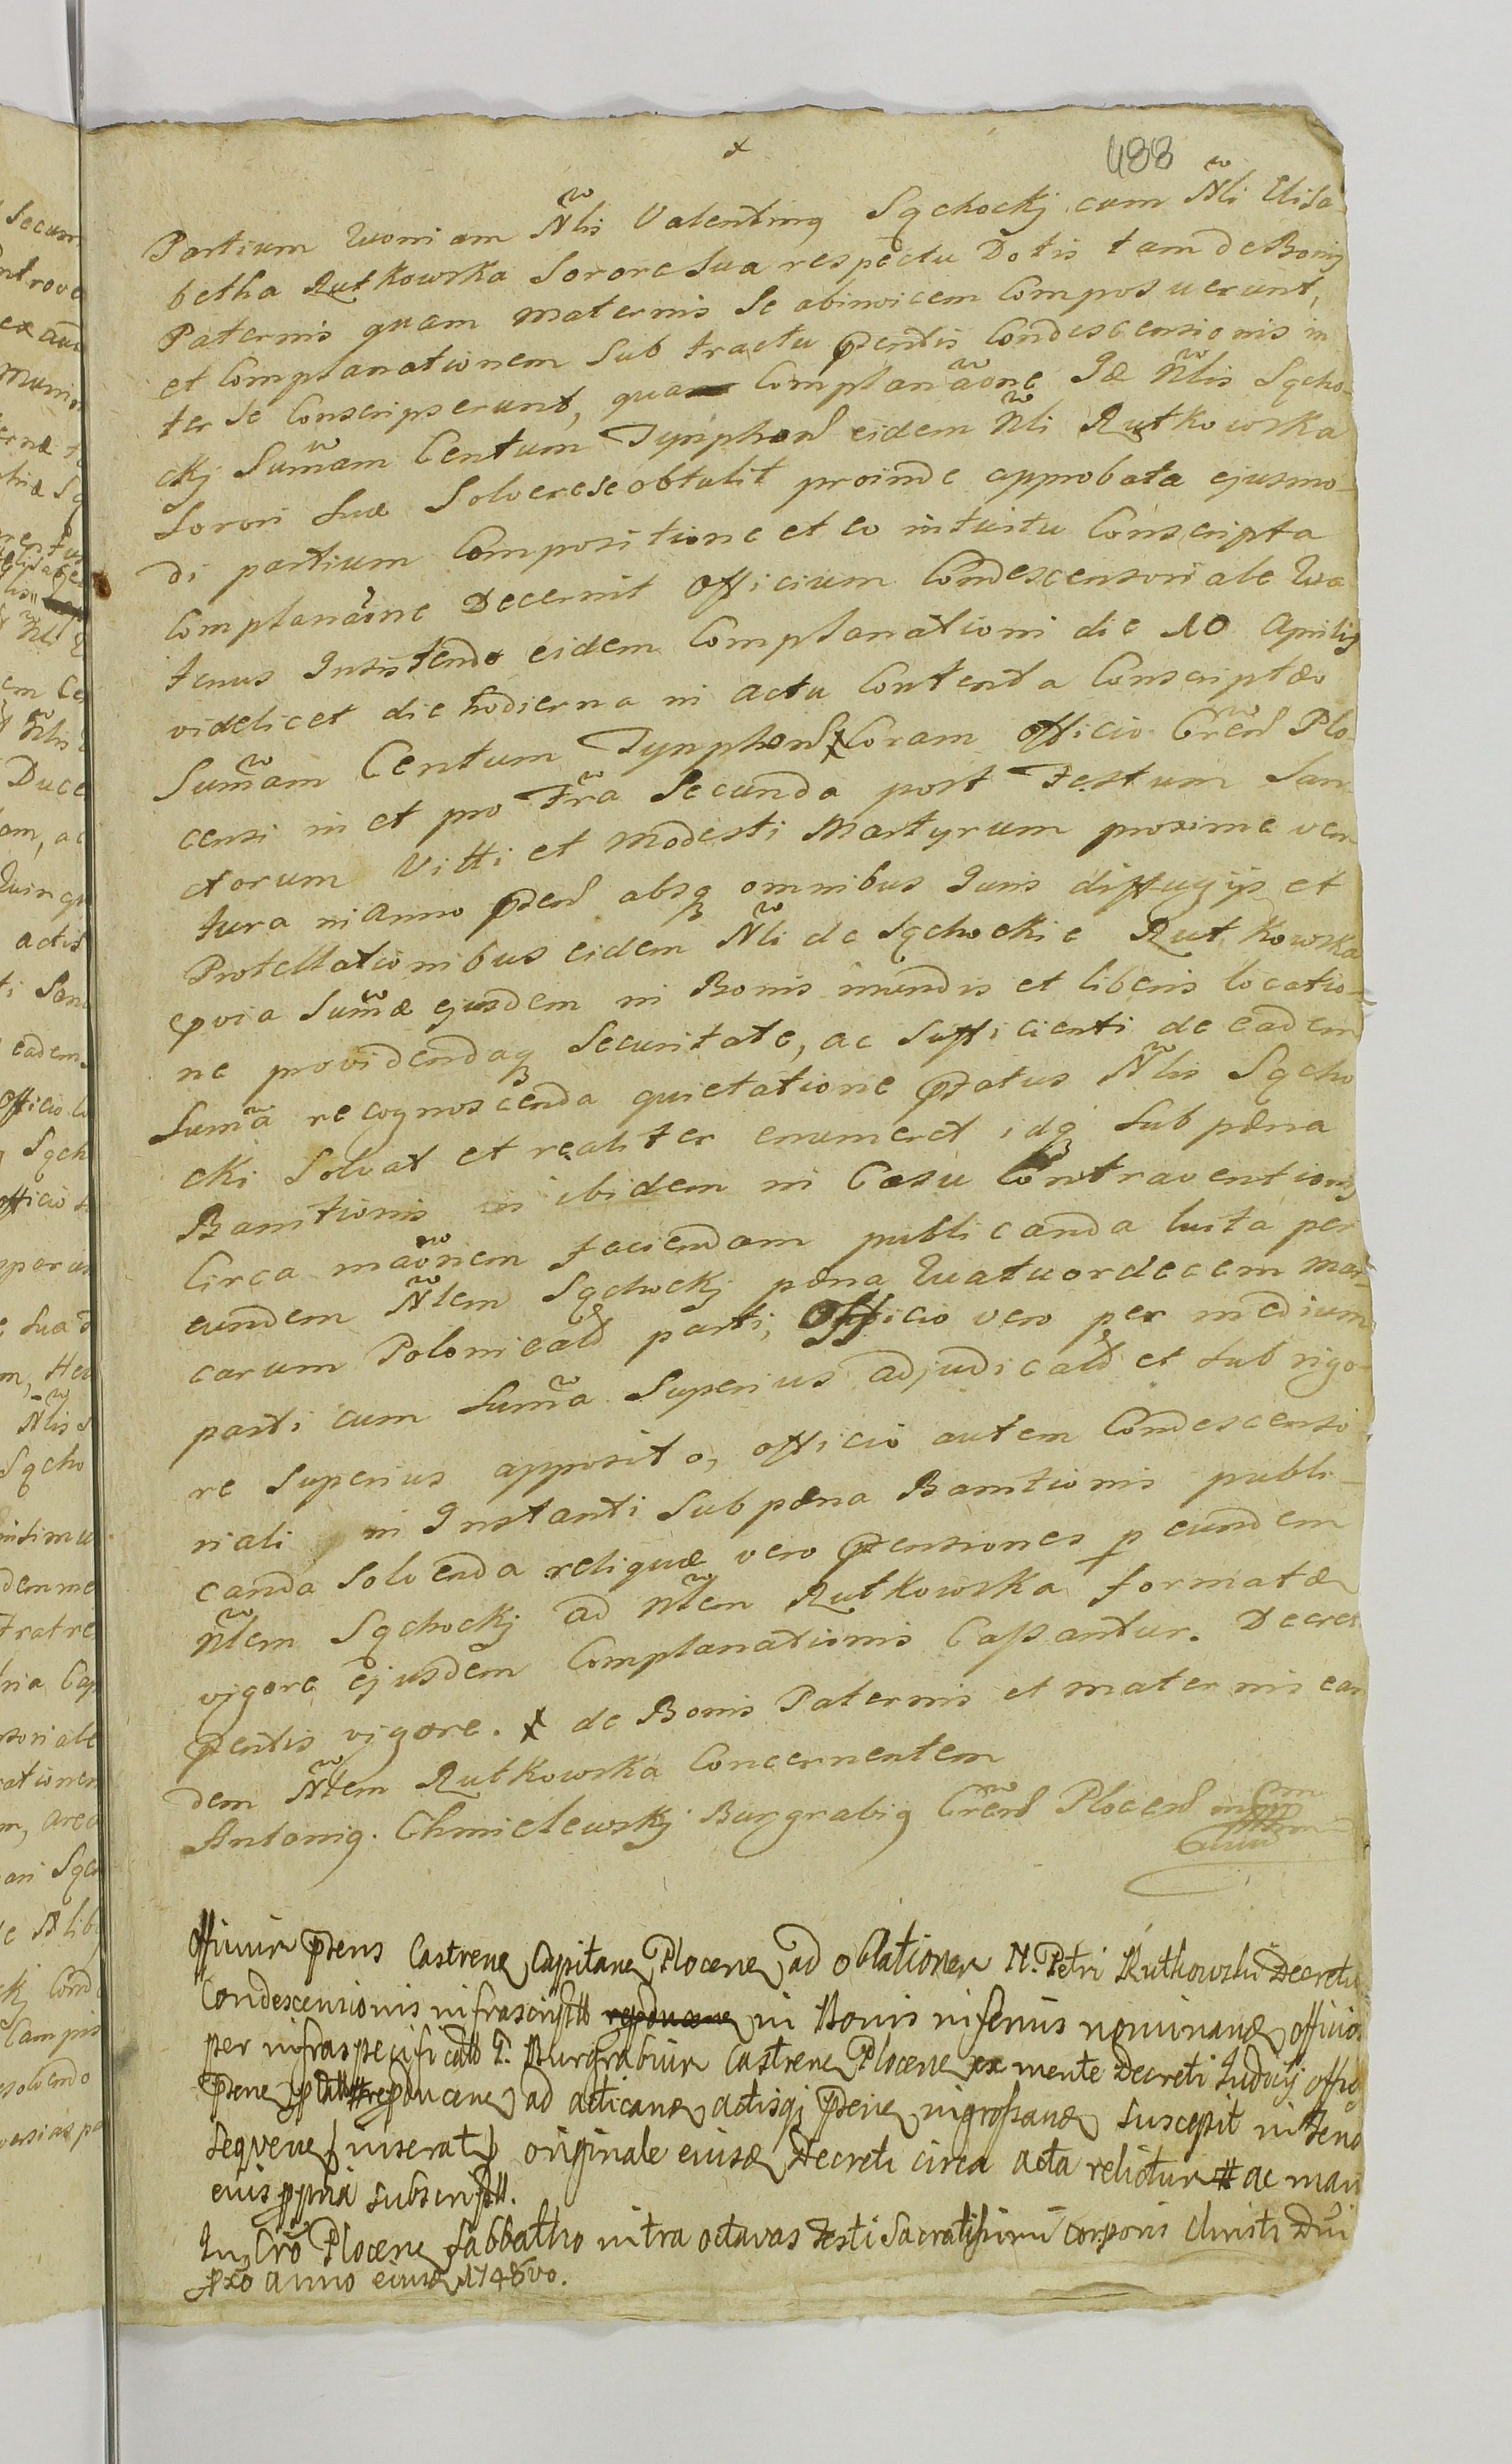 488
Partium Quoniam Ñlis Valentinq Sąchockj cum Ñli Elisa-
betha Rutkowska Sorore Sua respectu Dotis tam de Bonis
Paternis quam Maternis Se abinvicem Composuerunt,
et Complanationem Sub tractu pñtis Condescensionis in
ter Se Conscripserunt, qua Complanãone Idē Ñlis Sącho-
ckj Sum̃am Centum Tynphon eidem Ñli Rutkowska
Sorori Suæ Solvere se obtulit proinde approbata ejusmo-
di partium Compositione et eo intuitu Conscripta
Complanãone Decernit Officium Condescensoriale Qua
tenus Insistendo eidem Complanationi die 10 Aprilis
videlicet die hodierna in actu Contenta Conscriptæ
Sum̃am Centum Tynphon x Coram Officio Cren Plo
censi in et pro Fr̃ia Secunda post Festum San
ctorum Vitti et Modesti Martyrum proxime ven
tura in Anno pñen absq omnibus Iuris diffugijs et
Protestationibus eidem Ñli de Sąchockie Rutkowska
prvia Sum̃æ ejusdem in Bonis mundis et liberis locatio-
ne providendaq Securitate, ac Sufficienti de eadem
Sum̃a recognoscenda quietatione pñatus Ñlis Sącho
cki Solvat et realiter enumeret idq Sub pæna
Banitionis in ibidem in Casu Contraventionis
Circa mãonem faciendam publicanda luita per
eundem Ñlem Sąchockj pæna Quatuordecem Mar-
carum Polonicald parti, Officio vero per medium
parti cum Sum̃a Superius adjudicald et Sub rigo-
re Superius apposito, officio autem Condescenso
riali in Instanti Sub pæna Banitionis publi-
canda Solvenda reliquæ vero prtensiones p eundem
Ñlem Sąchockj ad Ñlem Rutkowska formatæ
vigore ejusdem Complanationis Cassantur. Decret
pñtis vigore. x de Bonis Paternis et maternis ean
dem Ñlem Rutkowska Concernentem
Antoniq. Chmielewskj Burgrabiq Cren Plocen
Officium prens Castrene Capitane Plocene ad oblationem N. Petri Rutkowski Decretu
Condescensionis infrascript in Bonis inferius nominane officio
per infraspecificat P. Burgrabium Castrene Plocene ex mente Decreti Iudicij offi
prene reproducene ad acticane actisqj prene ingrossane suscepit in Teno
sequene inserat originale eiusde Decreti circa acta relictum ac man
eius ppria subscript.
In Cro Plocene Sabbatho intra octavas Festi Sacratissimi Corporis Christi Dni
pxo anno eiusde 1748vo.